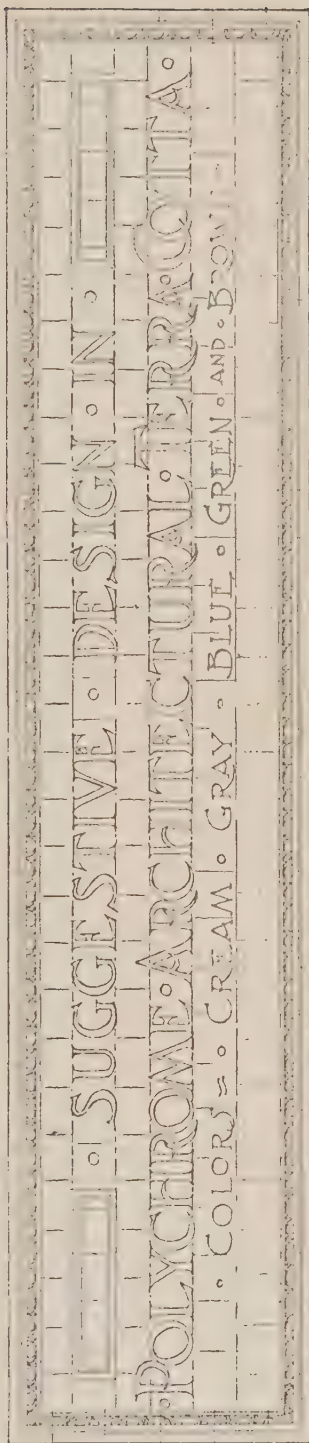 · SUGGESTIVE · DESIGN · IN ·
· POLYCHROME · ARCHITECTURAL · TERRA COTTA ·
· COLORS = · CREAM · GRAY · BLUE · GREEN · AND · BROWN